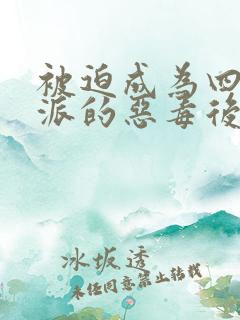 被迫成為四
派的惡毒後
冰坂透
未经同意禁止转载